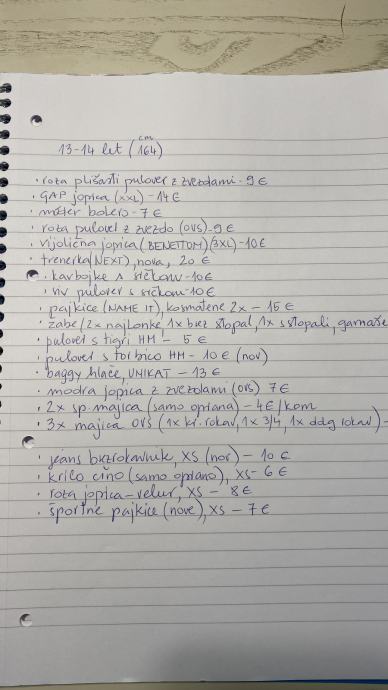 13-14 let (164)
cm
· roza plišasti pulover z zvezdami - 9 €
· GAP jopica (XXL) - 14 €
· móter bolero - 7 €
· roza pulover z zvezdo (OVS) - 9 €
· vijolična jopica (BENETTOM) (3XL) - 10 €
· trenerka (NEXT), nova, 20 €
· kavbojke s srčkom - 10 €
· siv pulover s srčkom - 10 €
· pajkice (NAME IT), kosmatene 2x - 15 €
· žabe (2x najlonke 1x brez stopal, 1x s stopali, gamaše
· pulover s tigri HM - 5 €
· pulover s torbico HM - 10 € (nov)
· baggy hlače, UNIKAT - 13 €
· modra jopica z zvezdami (OVS) 7 €
· 2x sp. majica (samo oprana) - 4 € / kom
· 3x majica OVS (1x kr. rokav, 1x 3/4, 1x dolg rokav) -
· jeans brezrokavnik, XS (nov) - 10 €
· krilo ciño (samo oprano), XS - 6 €
· roza jopica - velur, XS - 8 €
· športne pajkice (nove), XS - 7 €